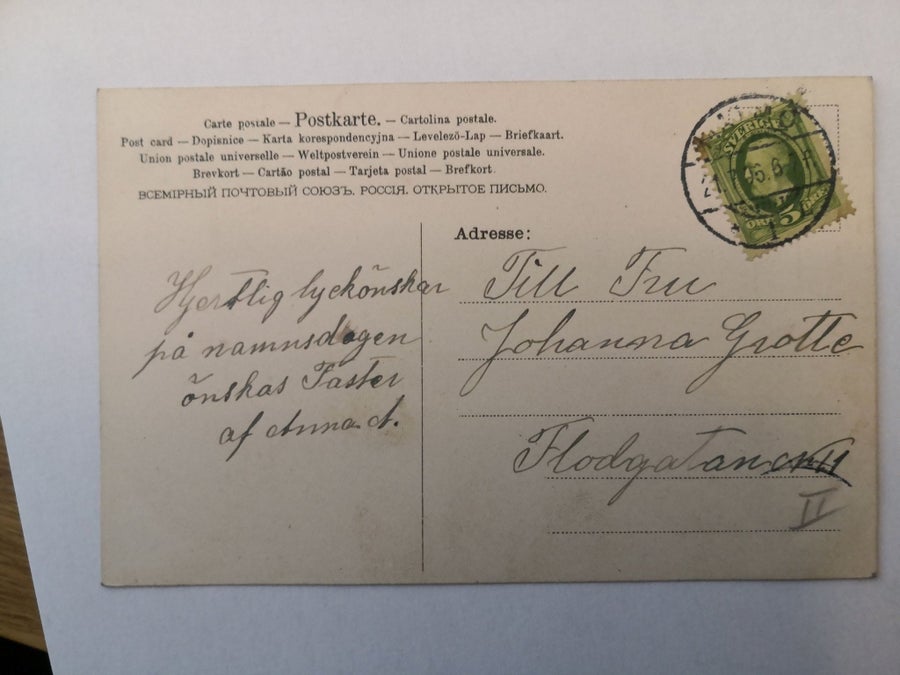 Carte postale — Postkarte. — Cartolina postale.
Post card — Dopisnice — Karta korespondencyjna — Levelező-Lap — Briefkaart.
Union postale universelle — Weltpostverein — Unione postale universale.
Brevkort — Cartão postal — Tarjeta postal — Brefkort.
ВСЕМІРНЫЙ ПОЧТОВЫЙ СОЮЗЪ. РОССІЯ. ОТКРЫТОЕ ПИСЬМО.
SVERIGE
5
ÖRE
Adresse:
Hjertlig lyckönskan
på namnsdagen
önskas Faster
af Anna A.
Till Fru
Johanna Grotte
Flodgatan
II